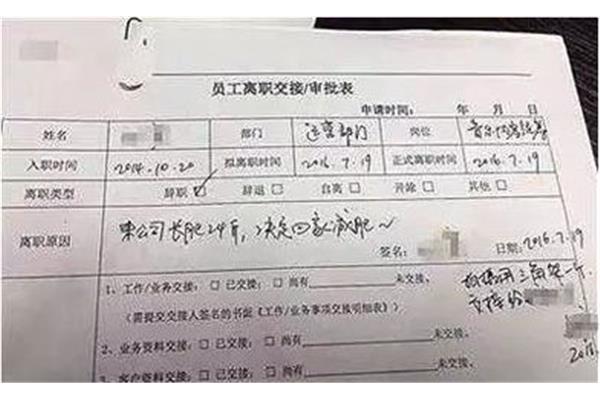 员工离职交接/审批表
申请时间: 年 月 日
姓名 部门 运营部门 岗位 音乐内容
入职时间 2014.10.20 拟离职时间 2016.7.19 正式离职时间 2016.7.19
离职类型 辞职 ☑ 辞退 □ 自离 □ 开除 □ 其他 □
离职原因 来公司长肥24斤,决定回家减肥~
签名: 日期: 2016.7.19
1、工作/业务交接: □ 已交接; □ 尚有 未交接。
(需提交交接人签名的书面《工作/业务事项交接明细表》)
2、业务资料交接: □ 已交接; □ 尚有 未交接。
3、客户资料交接: □ 已交接; □ 尚有 未交接
交接给
2016.